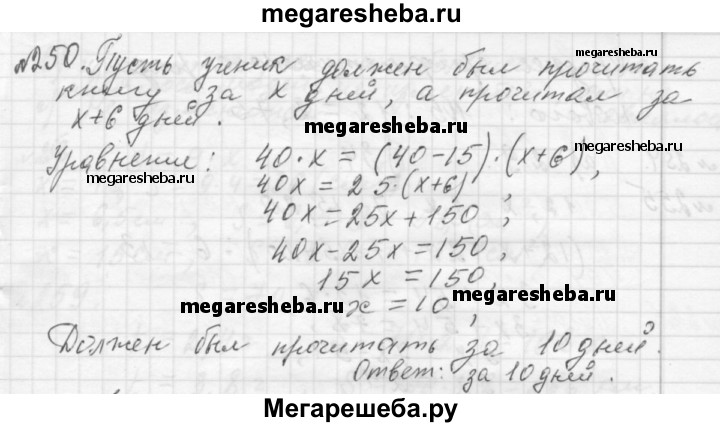 megaresheba.ru
№250. Пусть ученик должен был прочитать
megaresheba.ru
книгу за x дней, а прочитал за
x+6 дней.
megaresheba.ru
Уравнение: 40·x = (40-15)·(x+6),
megaresheba.ru
40x = 25·(x+6),
40x = 25x + 150,
40x - 25x = 150,
15x = 150,
megaresheba.ru
x = 10,
megaresheba.ru
Должен был прочитать за 10 дней.
Ответ: за 10 дней.
Мегарешеба.ру